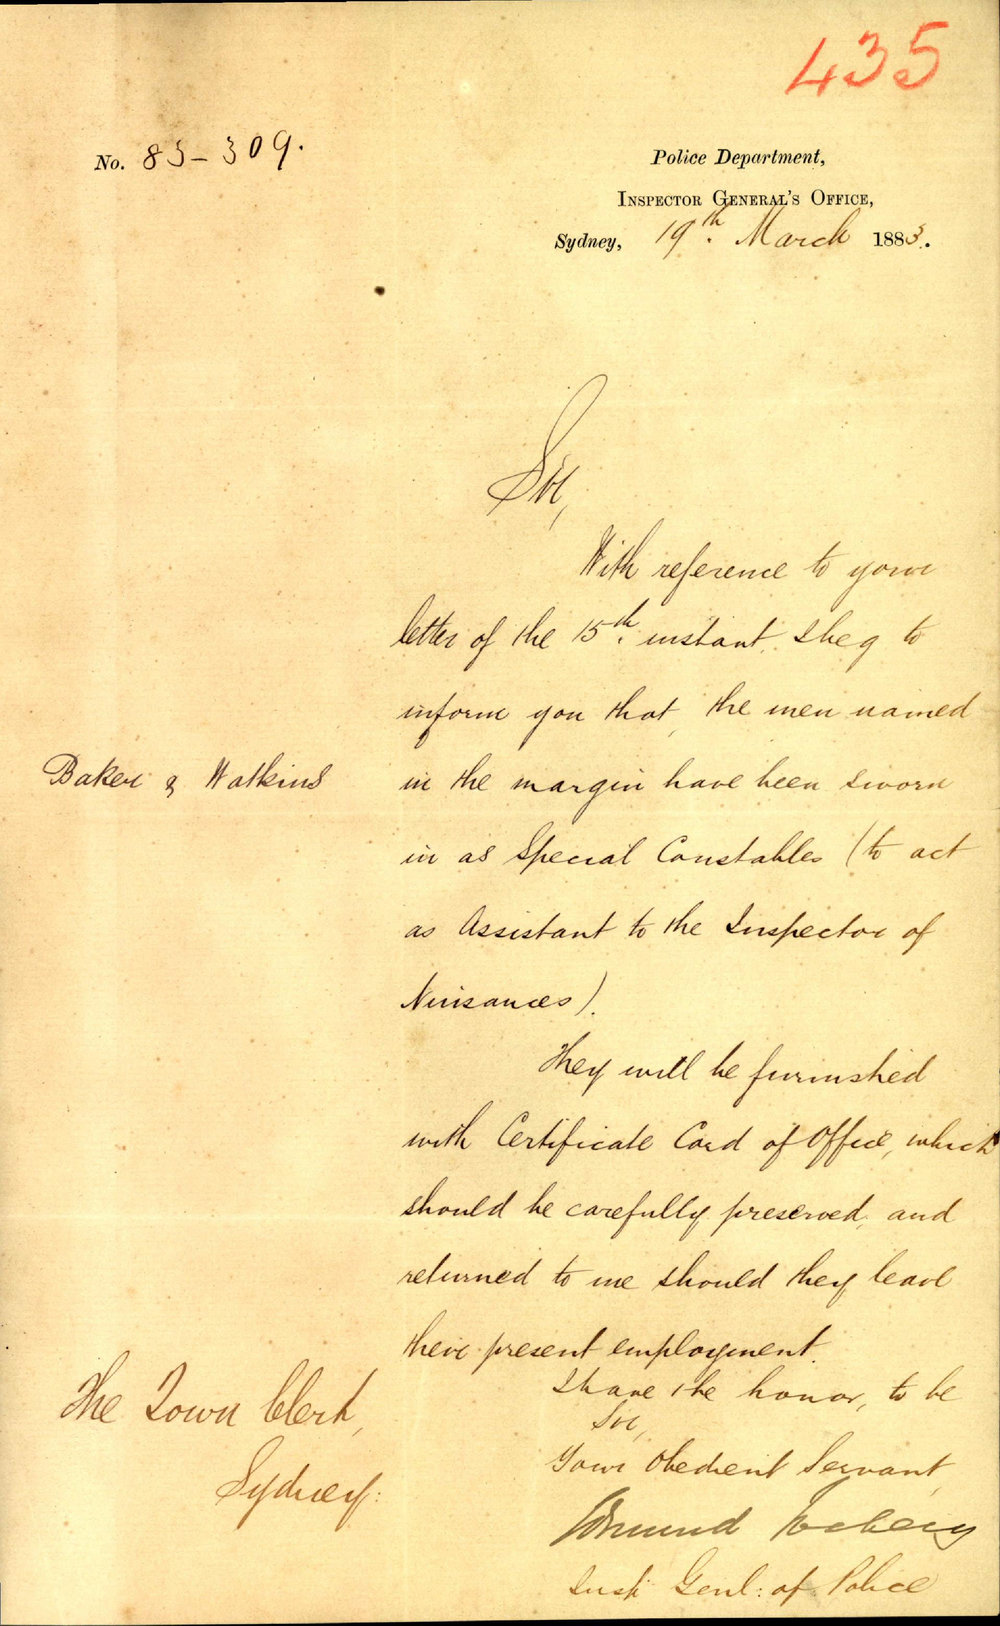 435
No. 83-309.
Police Department,
Inspector General's Office,
Sydney, 19th. March 1883.
Sir,
With reference to your
letter of the 15th. instant, I beg to
inform you that, the men named
Baker & Watkins
in the margin have been sworn
in as Special Constables (to act
as Assistant to the Inspector of
Nuisances).
They will be furnished
with Certificate Card of Office, which
should be carefully preserved, and
returned to me should they leave
their present employment.
I have the honor, to be
Sir,
Your Obedient Servant,
Edmund Fosbery
Insp. Genl: of Police
The Town Clerk,
Sydney: